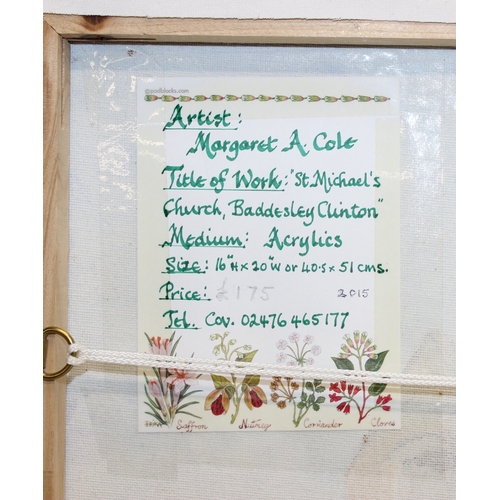 Artist:
Margaret A. Cole
Title of Work: "St. Michael's
Church, Baddesley Clinton"
Medium: Acrylics
Size: 16"H x 20"W or 40.5 x 51 cms.
Price: £175 2015
Tel. Cov. 02476 465177
Saffron Nutmeg Coriander Cloves